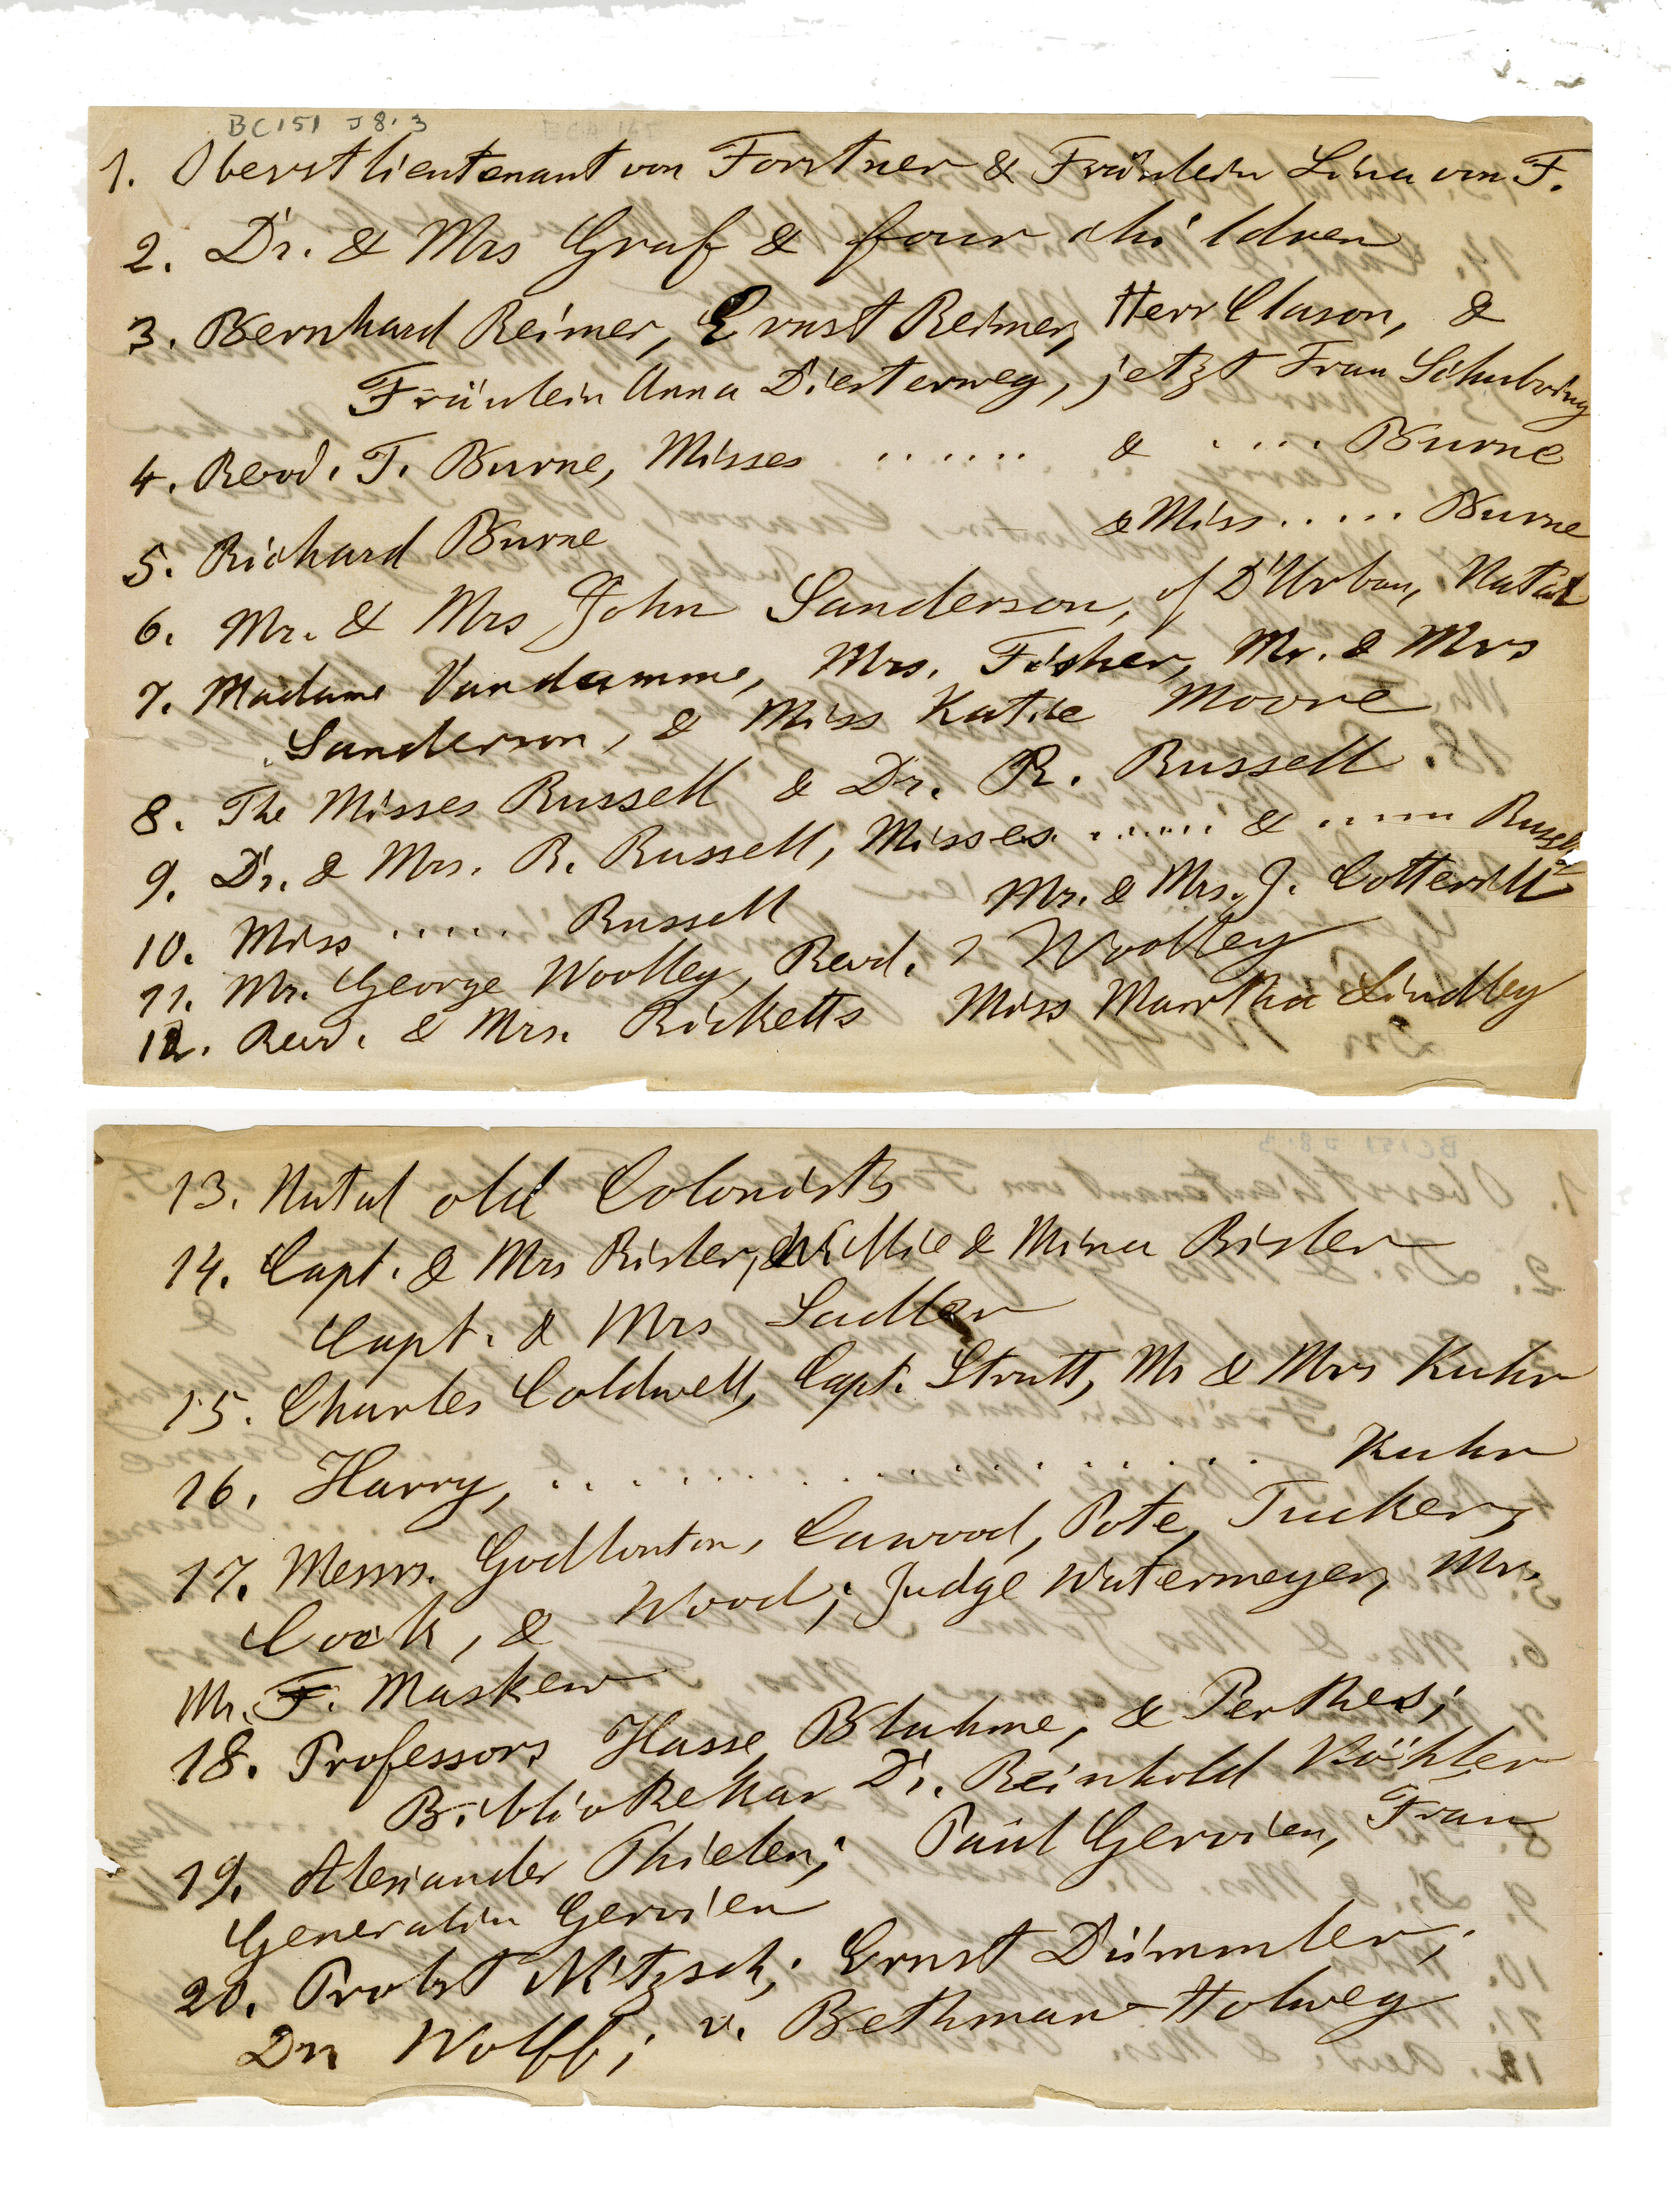 BC151 J8.3
1. Oberstlieutenant von Forstner & Fräulein Lina von F.
2. Dr. & Mrs Graf & four children
3. Bernhard Reimer, Ernst Reimer, Herr Clason, &
Fräulein Anna Diesterweg, jetzt Frau Schubring
4. Revd. T. Burne, Misses ...... & .... Burne
5. Richard Burne & Miss ..... Burne
6. Mr. & Mrs John Sanderson, of D'Urban, Natal
7. Madame Vandamme, Mrs. Fisher, Mr. & Mrs
Sanderson, & Miss Katie Moore
8. The Misses Russell & Dr. R. Russell.
9. Dr. & Mrs. R. Russell, Misses ...... & ..... Russell
10. Miss ..... Russell Mr. & Mrs. J. Cotterill
11. Mr. George Woolley, Revd. ? Woolley
12. Revd. & Mrs. Ricketts Miss Martha Lindley
13. Natal old Colonists
14. Capt. & Mrs Bisler, Willie & Mina Bisler
Capt. & Mrs Sadler
15. Charles Coldwell, Capt. Strutt, Mr & Mrs Kuhr
16. Harry, .................... Kuhr
17. Messrs. Godlonton, Cawood, Pote, Tucker,
Cock, & Wood; Judge Watermeyer, Mr.
Mr. F. Maskew
18. Professors Hasse, Bluhme, & Perthes;
Bibliothekar Dr. Reinhold Köhler
19. Alexander Thielen; Paul Gervien, Frau
Generalin Gervien
20. Probst Nitzsch; Ernst Dümmler;
Dr Wolff; v. Bethman-Holweg